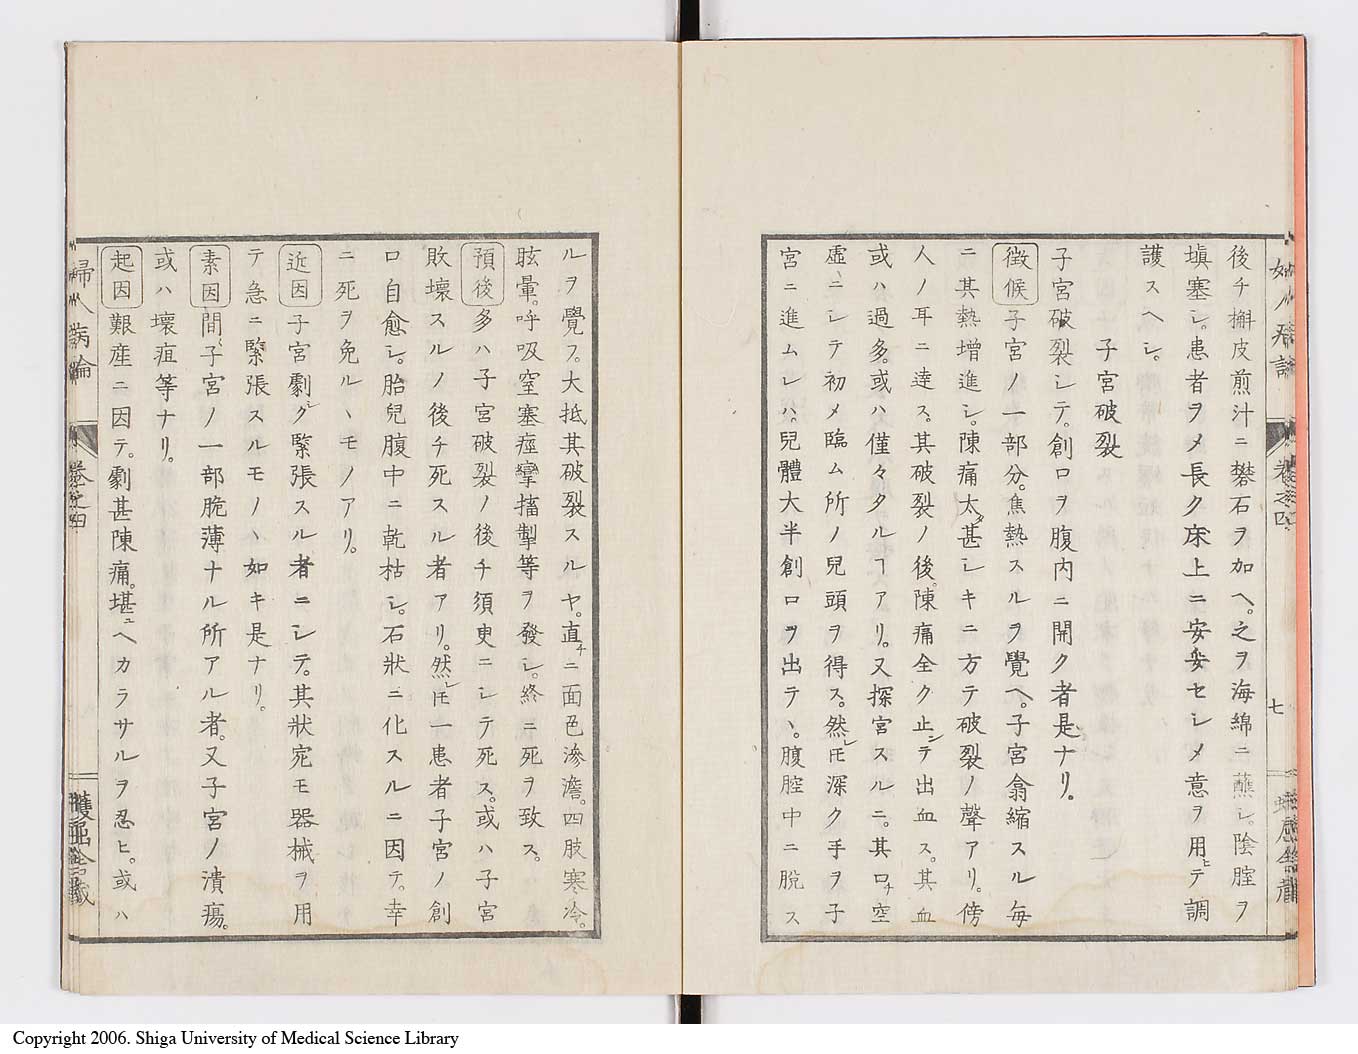 後チ槲皮煎汁ニ礬石ヲ加ヘ。之ヲ海綿ニ蘸シ。陰腟ヲ
塡塞シ。患者ヲメ長ク床上ニ安安セシメ意ヲ用ヒテ調
護スヘシ。
子宮破裂
子宮破裂シテ。創口ヲ腹内ニ開ク者是ナリ。
徴候 子宮ノ一部分。焦熱スルヲ覺ヘ。子宮翕縮スル毎
ニ其熱增進シ。陳痛太タ甚シキニ方テ破裂ノ聲アリ。傍
人ノ耳ニ達ス。其破裂ノ後。陳痛全ク止シテ出血ス。其血
或ハ過多。或ハ僅々タルヿアリ。又探宮スルニ。其口チ空
虚ニシテ初メ臨ム所ノ兒頭ヲ得ス。然レ𪜈深ク手ヲ子
宮ニ進ムレハ。兒體大半創口ヲ出テヽ。腹腔中ニ脱ス
七
ルヲ覺フ。大抵其破裂スルヤ。直チニ面色滲澹。四肢寒冷。
眩暈。呼吸窒塞痙攣搐掣等ヲ發シ。終ニ死ヲ致ス。
預後 多ハ子宮破裂ノ後チ須臾ニシテ死ス。或ハ子宮
敗壞スルノ後チ死スル者アリ。然レ𪜈一患者子宮ノ創
口自愈シ。胎兒腹中ニ乾枯シ。石狀ニ化スルニ因テ。幸
ニ死ヲ免ルヽモノアリ。
近因 子宮劇シク緊張スル者ニシテ。其狀宛モ器械ヲ用
テ急ニ緊張スルモノヽ如キ是ナリ。
素因 間〻子宮ノ一部脆薄ナル所アル者。又子宮ノ潰瘍。
或ハ壞疽等ナリ。
起因 艱産ニ因テ。劇甚陳痛。堪ユヘカラサルヲ忍ヒ。或ハ
婦人病論 卷之四
Copyright 2006. Shiga University of Medical Science Library